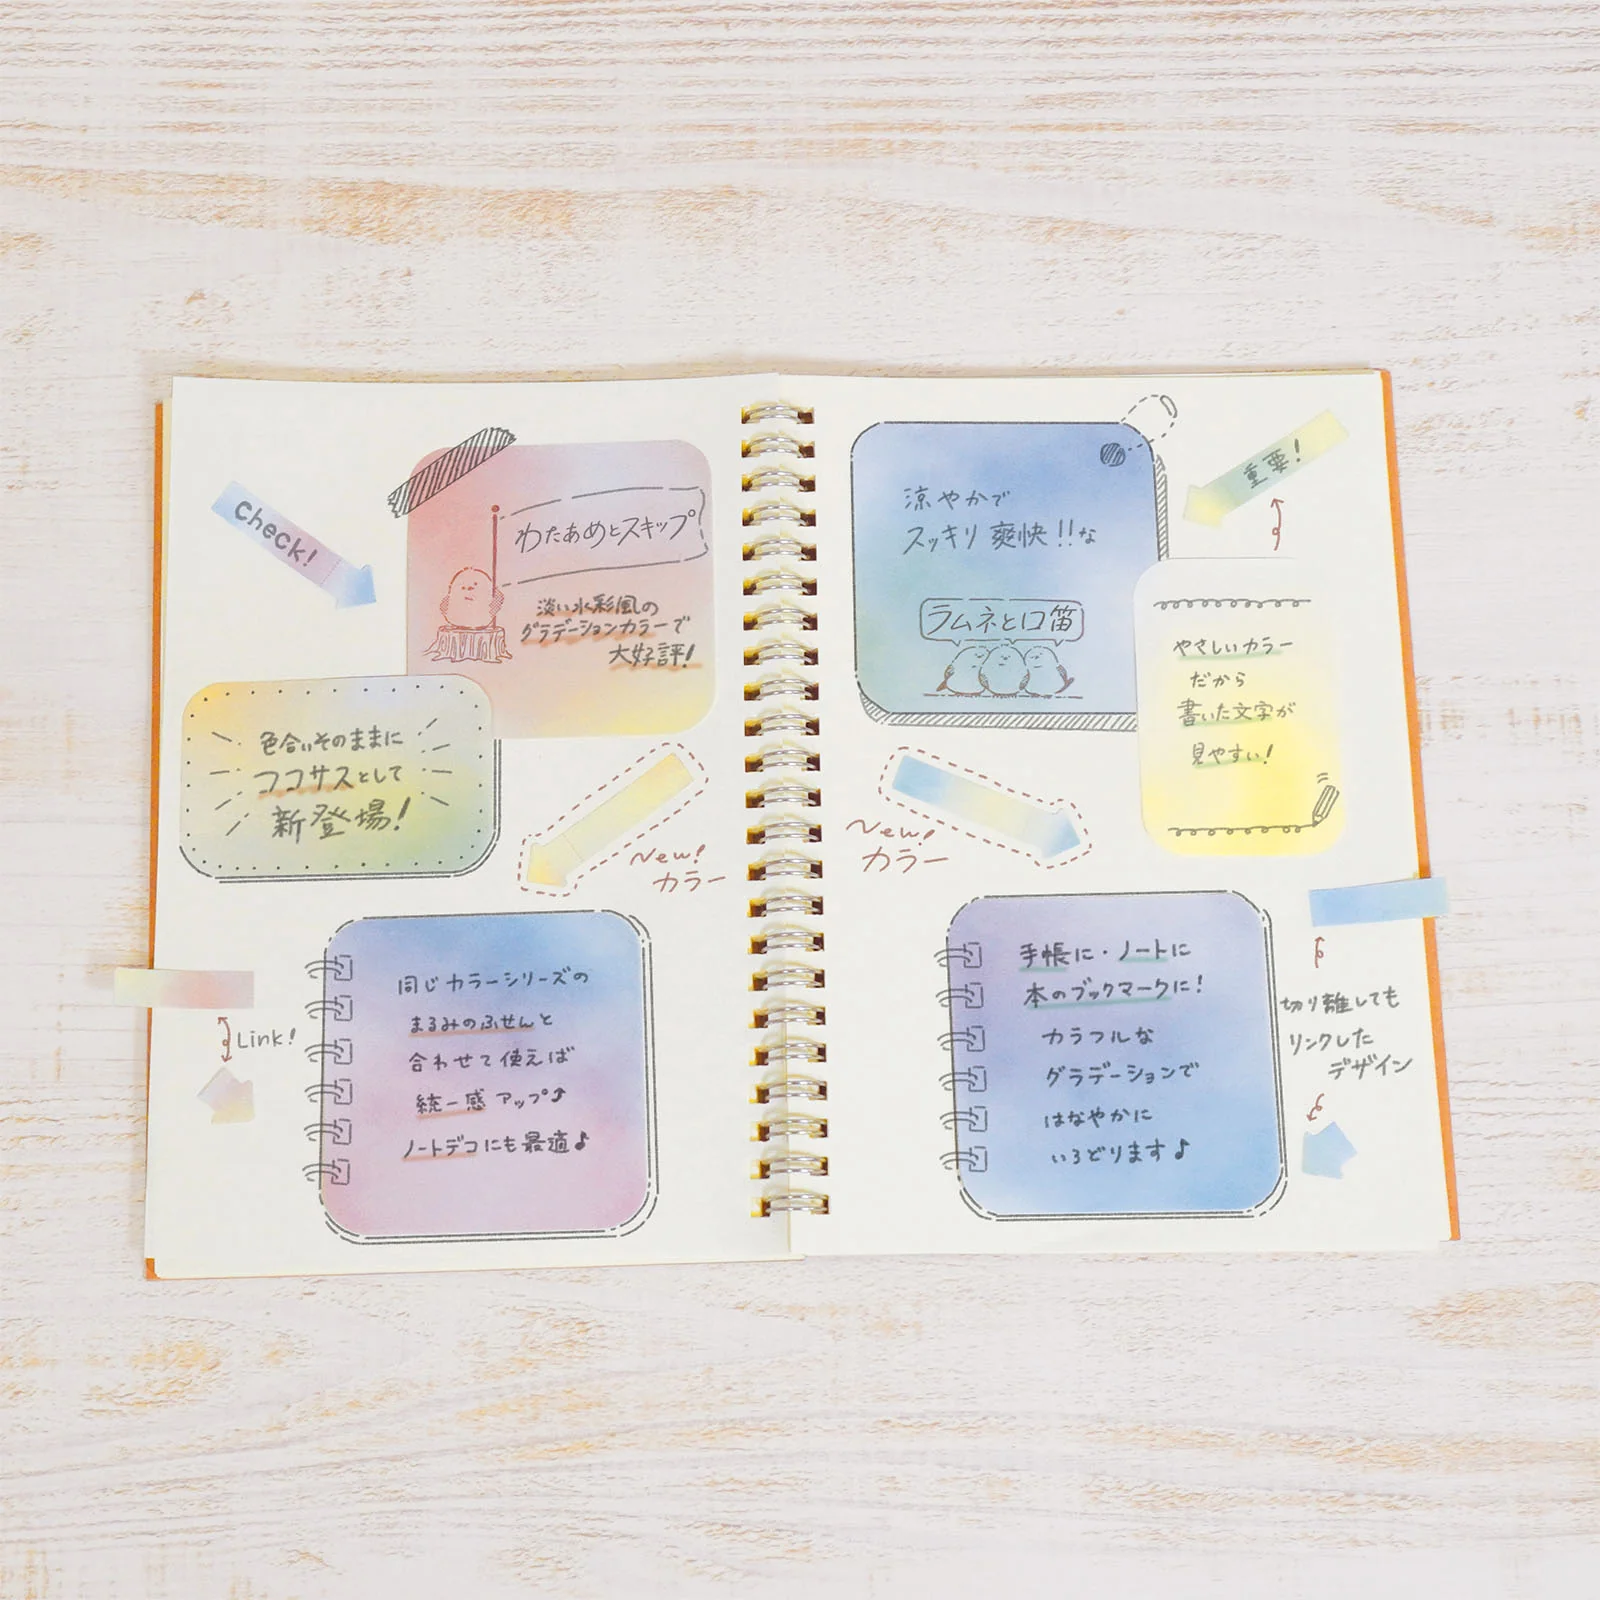 Check!
わたあめとスキップ
淡い水彩風の
グラデーションカラーで
大好評!
色合いそのままに
ココサスとして
新登場!
New!
カラー
Link!
同じカラーシリーズの
まるみのふせんと
合わせて使えば
統一感アップ⤴
ノートデコにも最適♪
涼やかで
スッキリ爽快!!な
ラムネと口笛
重要!
やさしいカラー
だから
書いた文字が
見やすい!
New!
カラー
手帳に・ノートに
本のブックマークに!
カラフルな
グラデーションで
はなやかに
いろどります♪
切り離しても
リンクした
デザイン